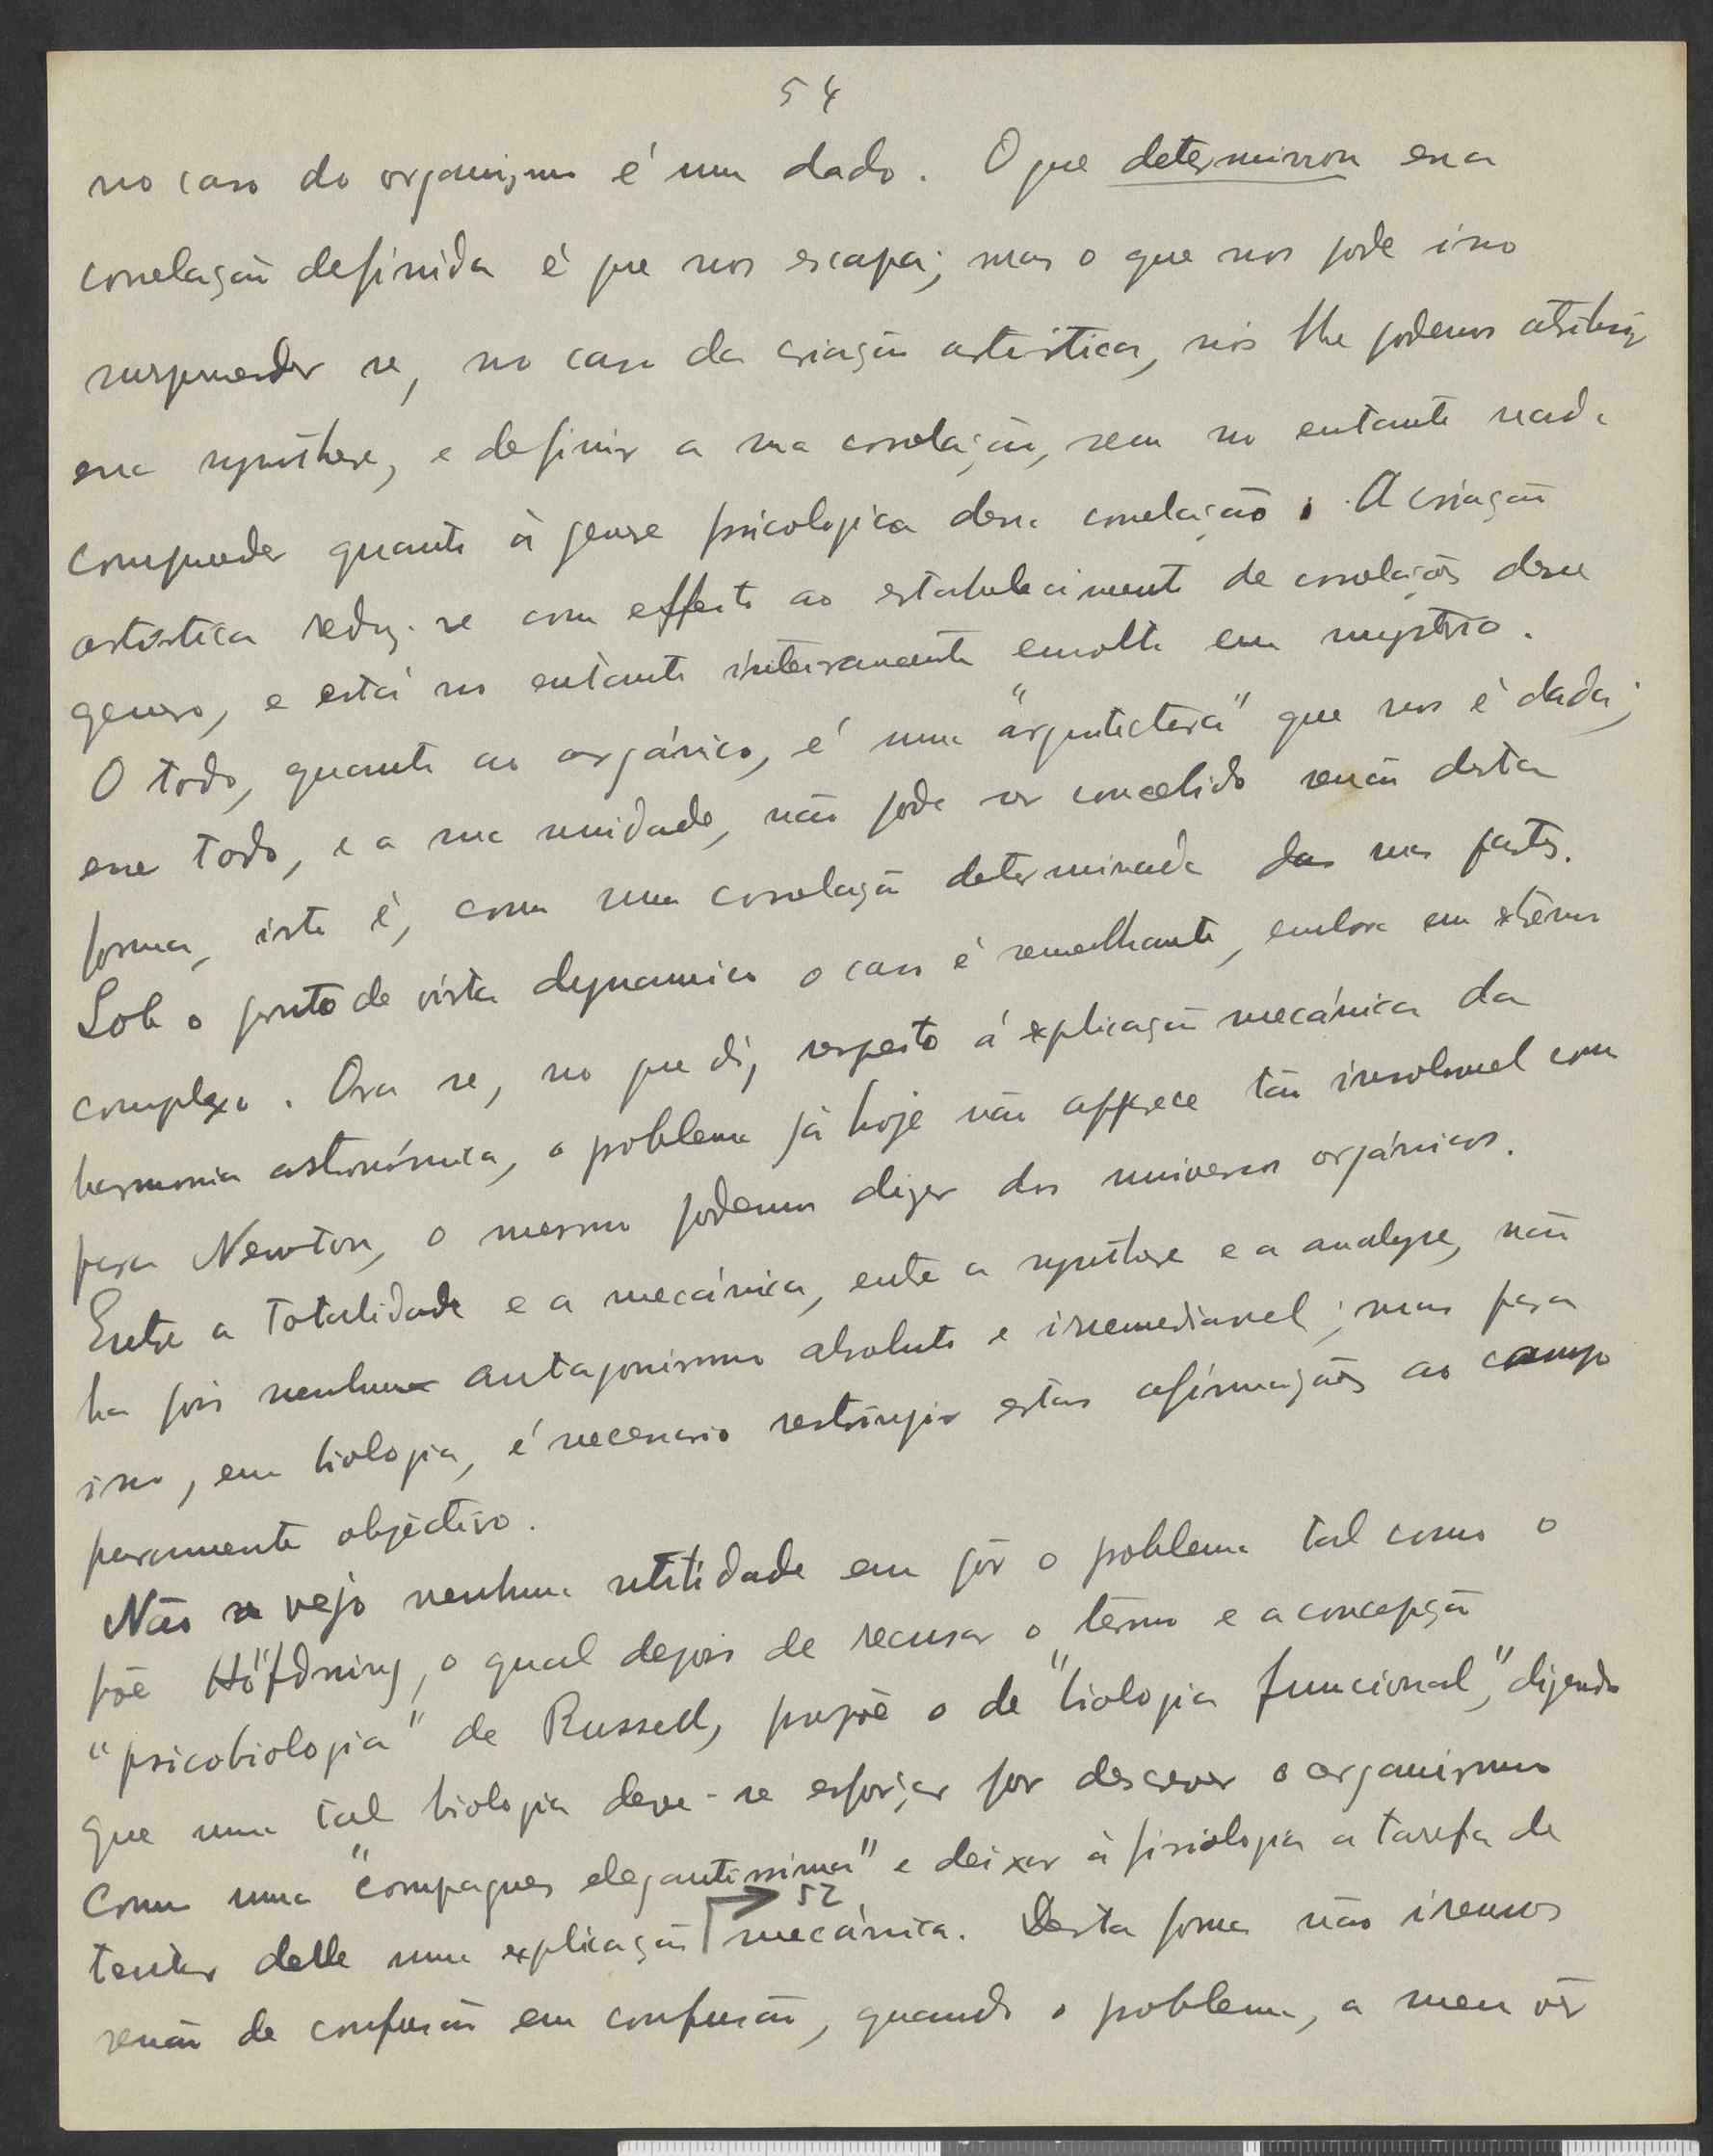 54
no caso do organismo é um dado. O que determinou essa
correlação definida é que nos escapa; mas o que nos pode isso
surprender se, no caso da criação artistica, nós lhe podemos atribuir
essa synthese, e definir a sua correlação, sem no entanto nada
comprender quanto à genese psicologica dessa correlação. A criação
artistica reduz-se com effeito ao estabelecimento de correlações desse
genero, e está no entanto inteiramente envolta em mysterio.
O todo, quanto ao orgánico, é uma "arquitectura" que nos é dada;
esse todo, e a sua unidade, não pode ser concebido senão desta
forma, isto é, como uma correlação determinada das suas partes.
Sob o ponto de vista dynamico o caso é semelhante, embora em extremo
complexo. Ora se, no que diz respeito á explicação mecánica da
harmonia astronómica, o problema já hoje não apparece tão insoluvel como
para Newton, o mesmo podemos dizer dos universos orgánicos.
Entre a totalidade e a mecánica, entre a synthese e a analyse, não
ha pois nenhum antagonismo absoluto e irremediavel; mas para
isso, em biologia, é necessario restringir estas afirmações ao campo
puramente objectivo.
Não vejo nenhuma utilidade em pôr o problema tal como o
põe Höffdning, o qual depois de recusar o termo e a concepção
"psicobiologia" de Russell, propõe o de "biologia funcional," dizendo
que uma tal biologia deve-se esforçar por descrever o organismo
como uma "compagues elegantissima" e deixar à fisiologia a tarefa de
52
tentar delle uma explicação mecánica. Desta forma não iremos
senão de confusão em confusão, quando o problema, a meu vêr